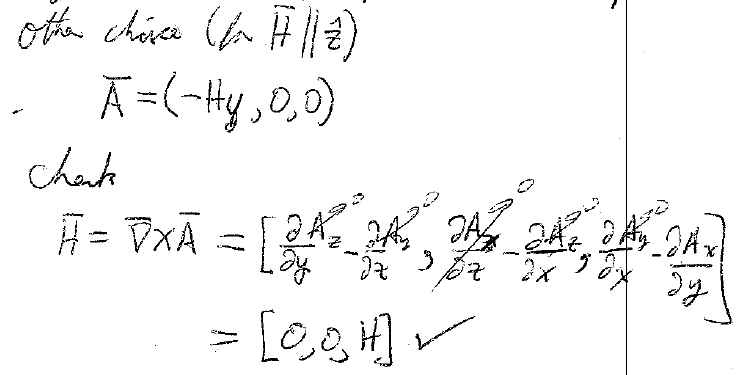 other choice (for H̅ ∥ ẑ)
A̅ = (-Hy, 0, 0)
check
H̅ = ∇̅×A̅ = [∂A_z/∂y⁰ - ∂A_y/∂z⁰, ∂A_x/∂z⁰ - ∂A_z/∂x⁰, ∂A_y/∂x⁰ - ∂A_x/∂y]
= [0, 0, H] ✓